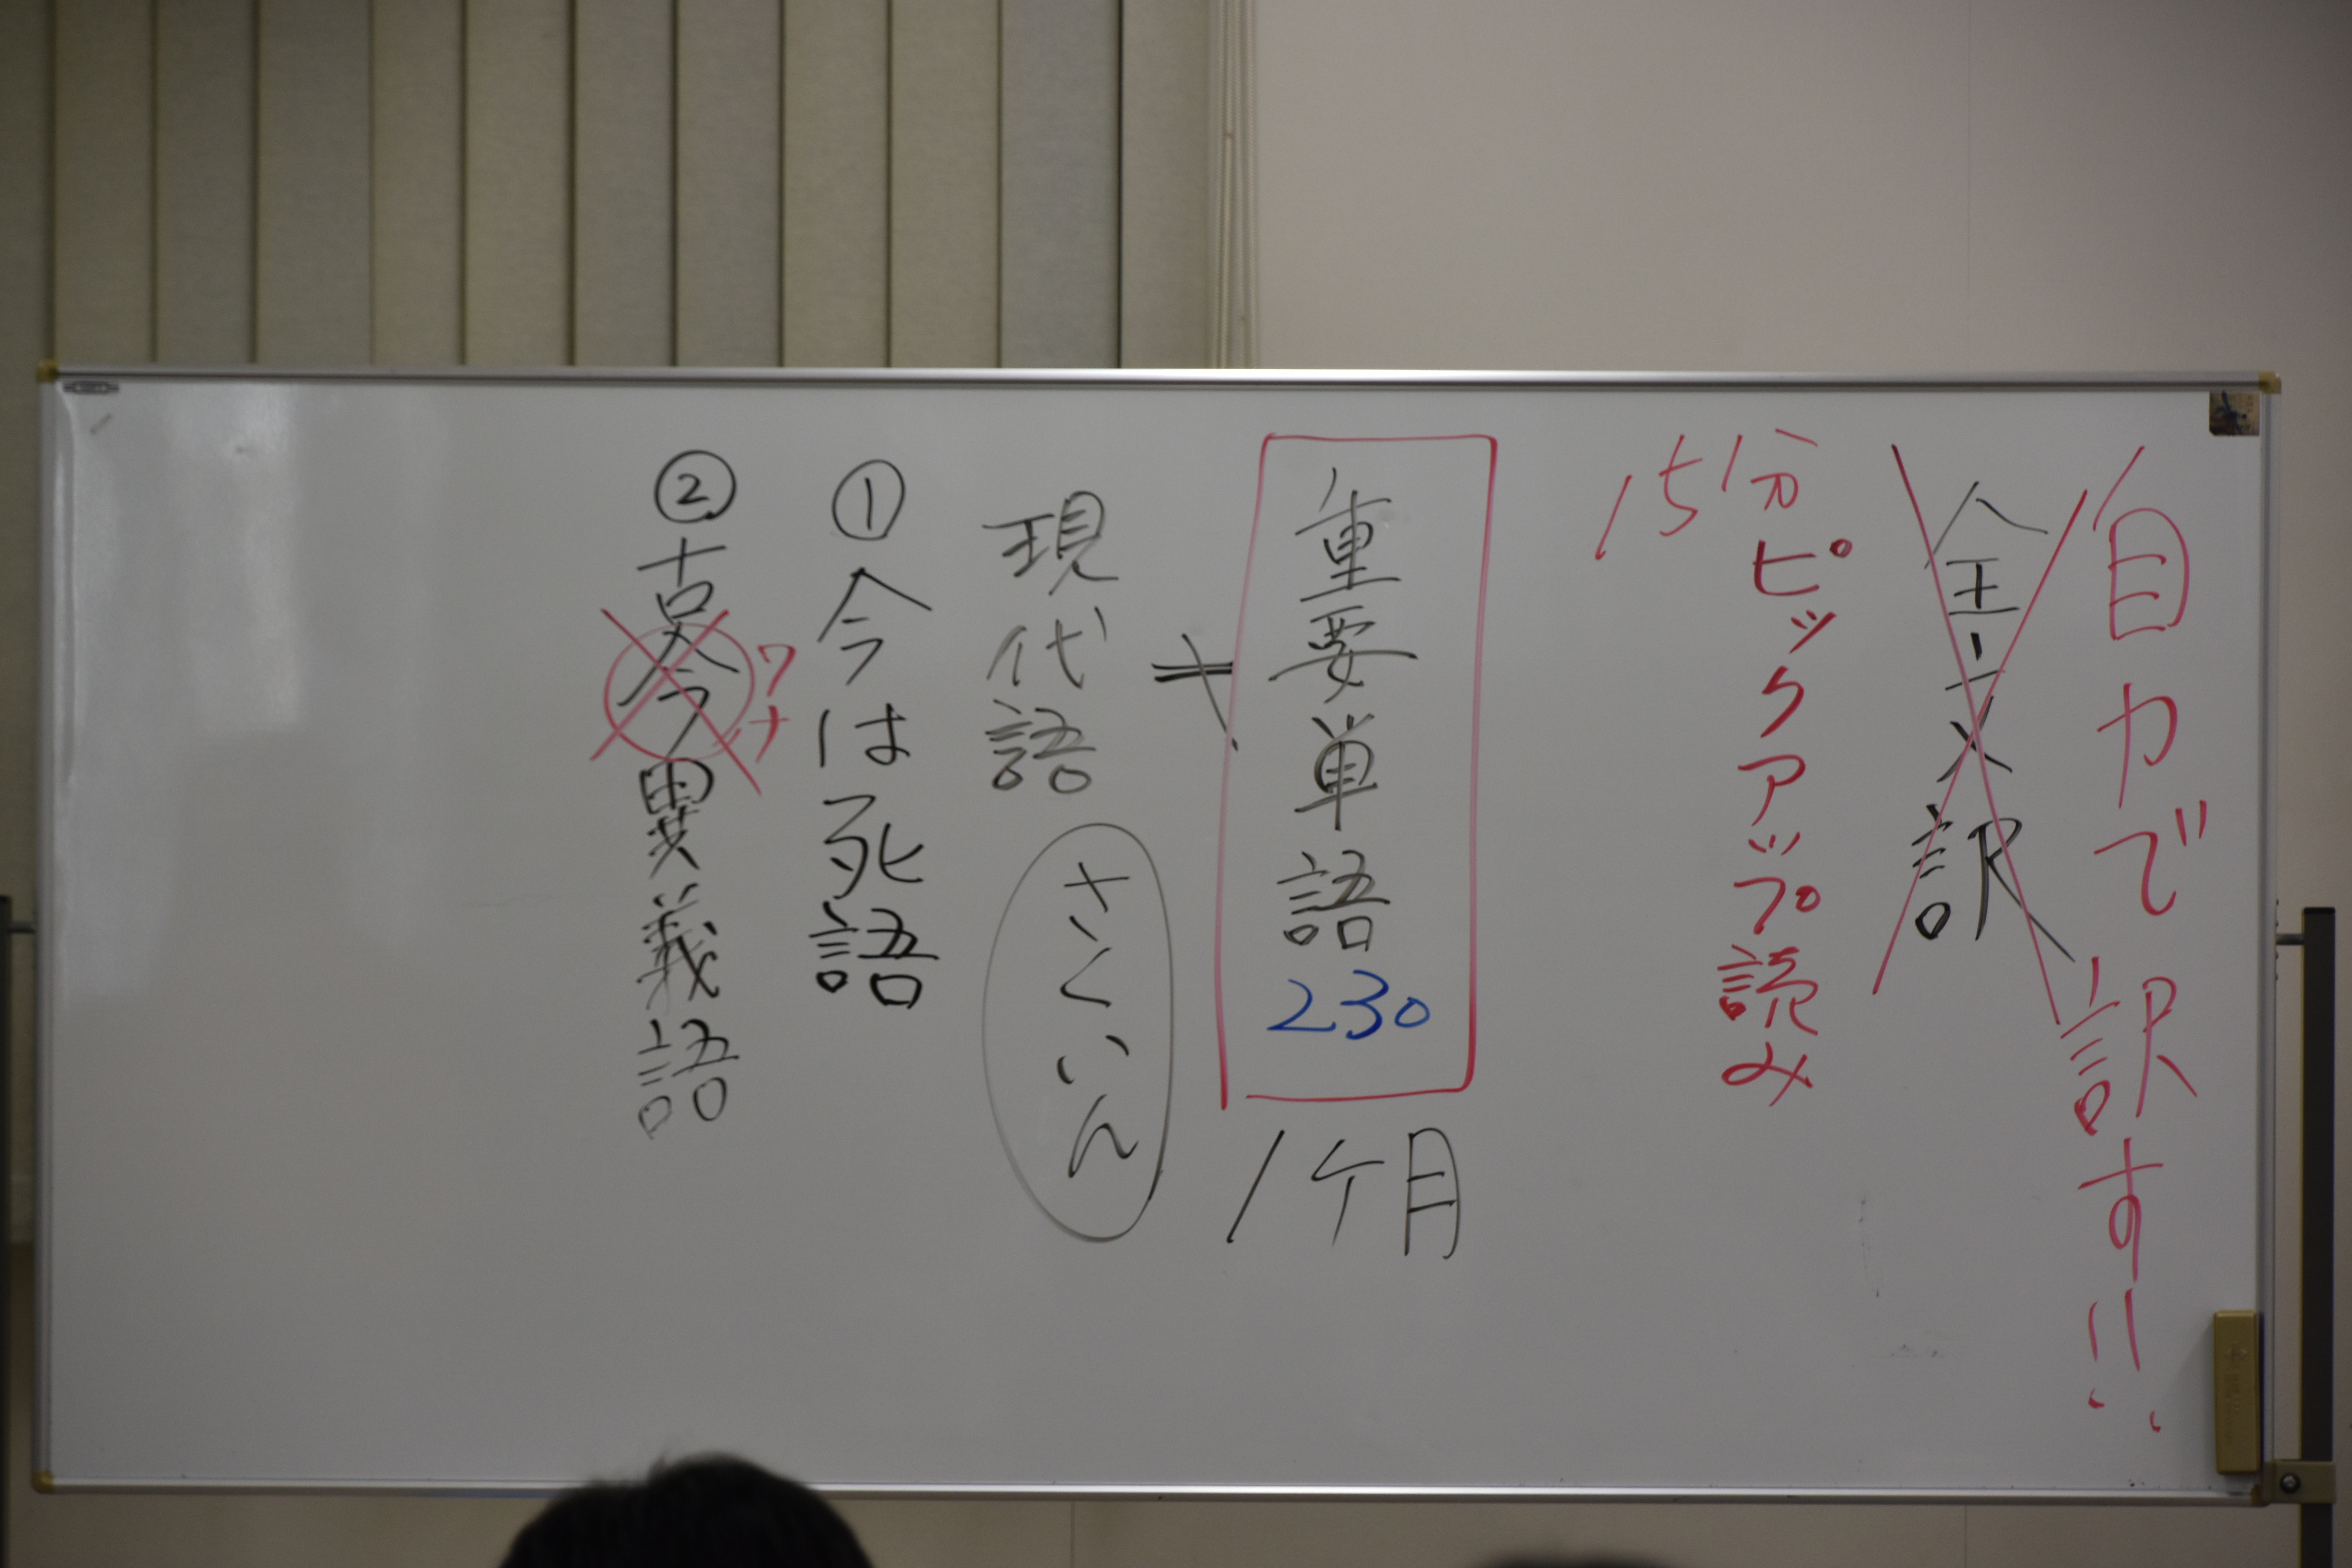 自力で訳す!!
全文訳
15分ピックアップ読み
重要単語230
1ケ月
≠
現代語
さくいん
①今は死語
②古今異義語
ワナ